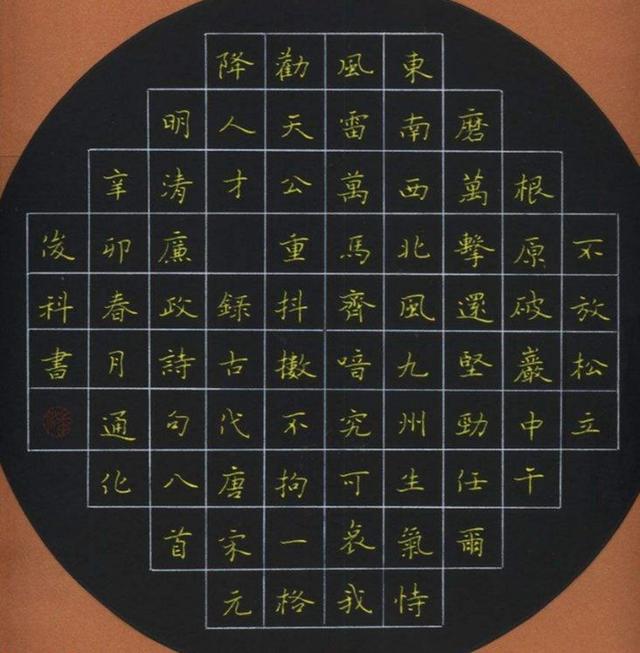 不放松立
根原破巖中干
磨萬擊還堅勁任爾
東南西北風九州生氣恃
風雷萬馬齊喑究可哀我
勸天公重抖擻不拘一格
降人才録古代唐宋元
明清廉政詩句八首
辛卯春月通化
科書